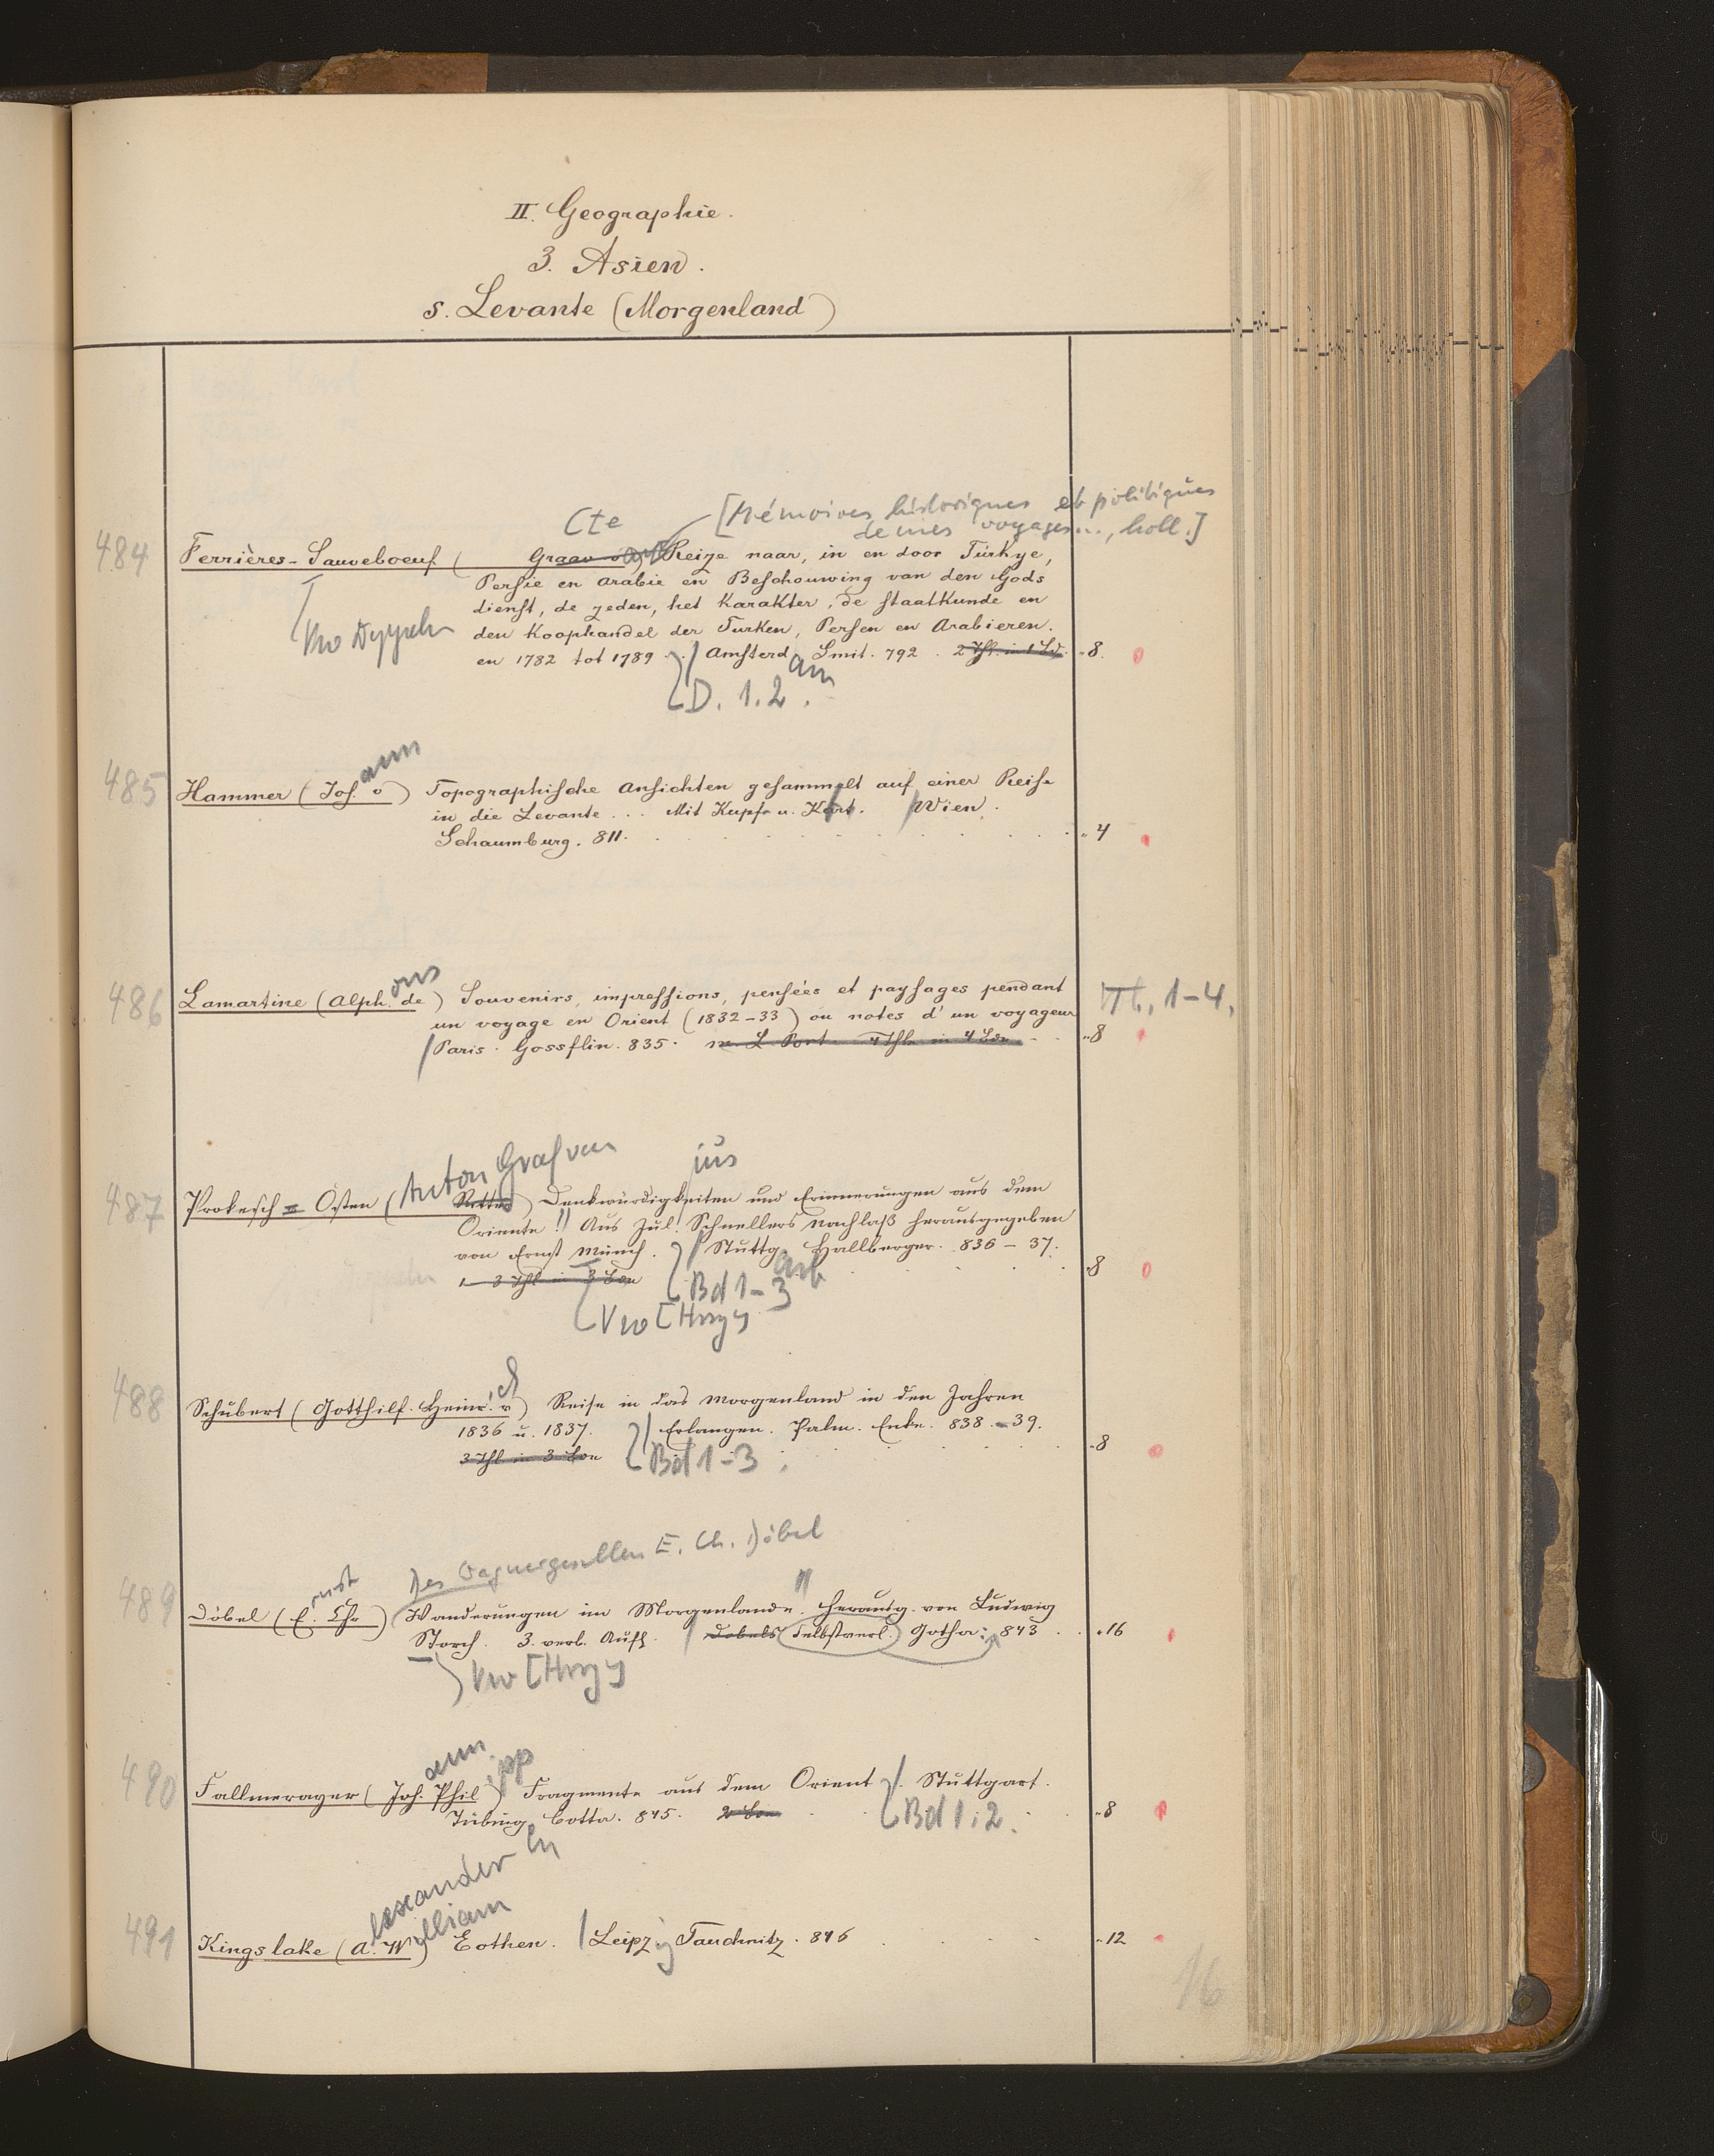 II. Geographie.
3. Asien.
s. Levante (Morgenland)
Cte [Mémoires historiques et politiques
de mes voyages..., holl.]
484 Ferrières-Sauveboeuf ( Graav Reize naar, in en door Türkye,
Persie en Arabie en Beschouwing van den Gods
dienst, de zeden, het Karakter, de staatkunde en
den Koophandel der Turken, Persen en Arabieren.
en 1782 tot 1789. Amsterd am Smit. 792. 2 Thl. in 1 Bd. 8.
D. 1.2.
485 Hammer (Jos. ann v) Topographische Ansichten gesammelt auf einer Reise
in die Levante ... Mit Kupf. u. Kart. Wien.
Schaumburg. 811. 4
486 Lamartine (Alph. ons de) Souvenirs, impressions, pensées et paysages pendant Tt. 1-4.
un voyage en Orient (1832-33) ou notes d'un voyageur
Paris. Gossflin. 835. m. L. Port. 4 Thle in 4 Bdn 8
Anton Graf von jus
487 Prokesch = Osten ( Ritter) Denkwürdigkeiten und Erinnerungen aus dem
Oriente!! Aus Jul. Schnellers Nachlaß herausgegeben
von Ernst Münch. Stuttg. art Hallberger. 836-37.
1-3 Thl in 3 Bdn Bd 1-3 8
Vw [Hrsg]
488 Schubert (Gotthilf. Heinr. ich v) Reise in das Morgenland in den Jahren
1836 u. 1837. Erlangen. Palm. Enke. 838.-39.
3 Thl in 3 Bdn Bd 1-3. 8
Des Wagnergesellen E. Ch. Döbel
489 Döbel (E. rnst Chr) Wanderungen im Morgenlande. herausg. von Ludwig
Storch. 3. verb. Aufl. Döbels Selbstverl. Gotha: 843 16
Vw [Hrsg]
490 Fallmerayer (Joh. ann Phil ipp) Fragmente aus dem Orient. Stuttgart.
Tübing. en Cotta. 845. 2 Bdn Bd 1.2. 8
491 Kingslake (A. lexander W illiam) Eothen. Leipz ig Tauchnitz. 846 12
16